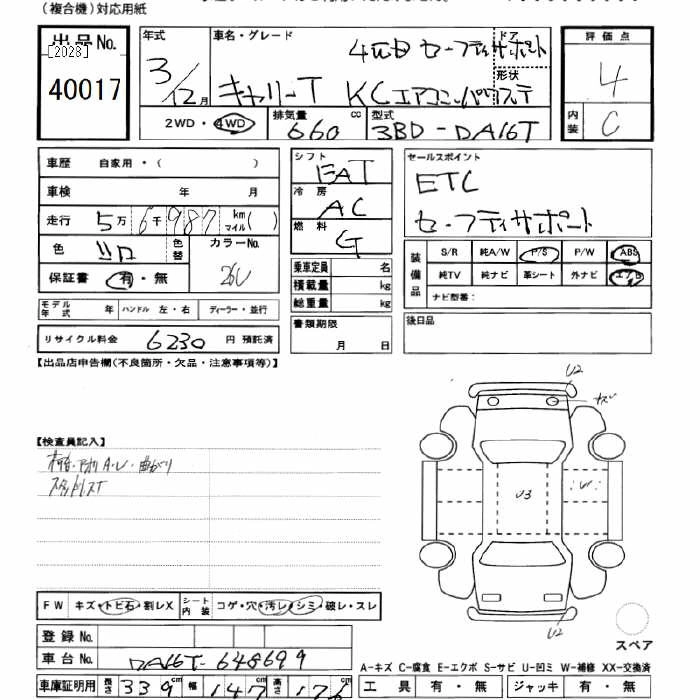 (複合機)対応用紙
出品No.
[2028]
40017
年式
3/12月
車名・グレード
4WD セーフティサポート
ドア
形状
キャリーT KCエアコンパワステ
評価点
4
内装
C
2WD・4WD
排気量
660 cc
型式
3BD-DA16T
車歴 自家用・( )
車検 年 月
走行 5万6千987 km マイル( )
色 シロ
色替
カラーNo.
26U
保証書 有・無
モデル年式 年 ハンドル 左・右 ディーラー・並行
リサイクル料金 6230 円 預託済
シフト
FAT
冷房
AC
燃料
G
乗車定員 名
積載量 kg
総重量 kg
書類期限
月 日
セールスポイント
ETC
セーフティサポート
装備品
S/R 純A/W P/S P/W ABS
純TV 純ナビ 革シート 外ナビ エアB
ナビ型番:
後日品
【出品店申告欄(不良箇所・欠品・注意事項等)】
【検査員記入】
荷台・アオリA・U・曲がり
スタッドレスT
U2
キズ
U3
U1
U2
スペア
FW キズ・トビ石・割レX
シート内装 コゲ・穴・汚レ・シミ・破レ・スレ
登録No.
車台No. DA16T-648699
車庫証明用 長さ 339 cm 幅 147 cm 高さ 176 cm
A-キズ C-腐食 E-エクボ S-サビ U-凹ミ W-補修 XX-交換済
工具 有・無 ジャッキ 有・無